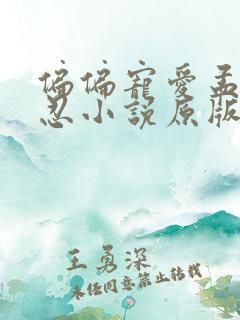 偏偏寵愛孟
忍小說原版
王勇深
未经同意禁止转载